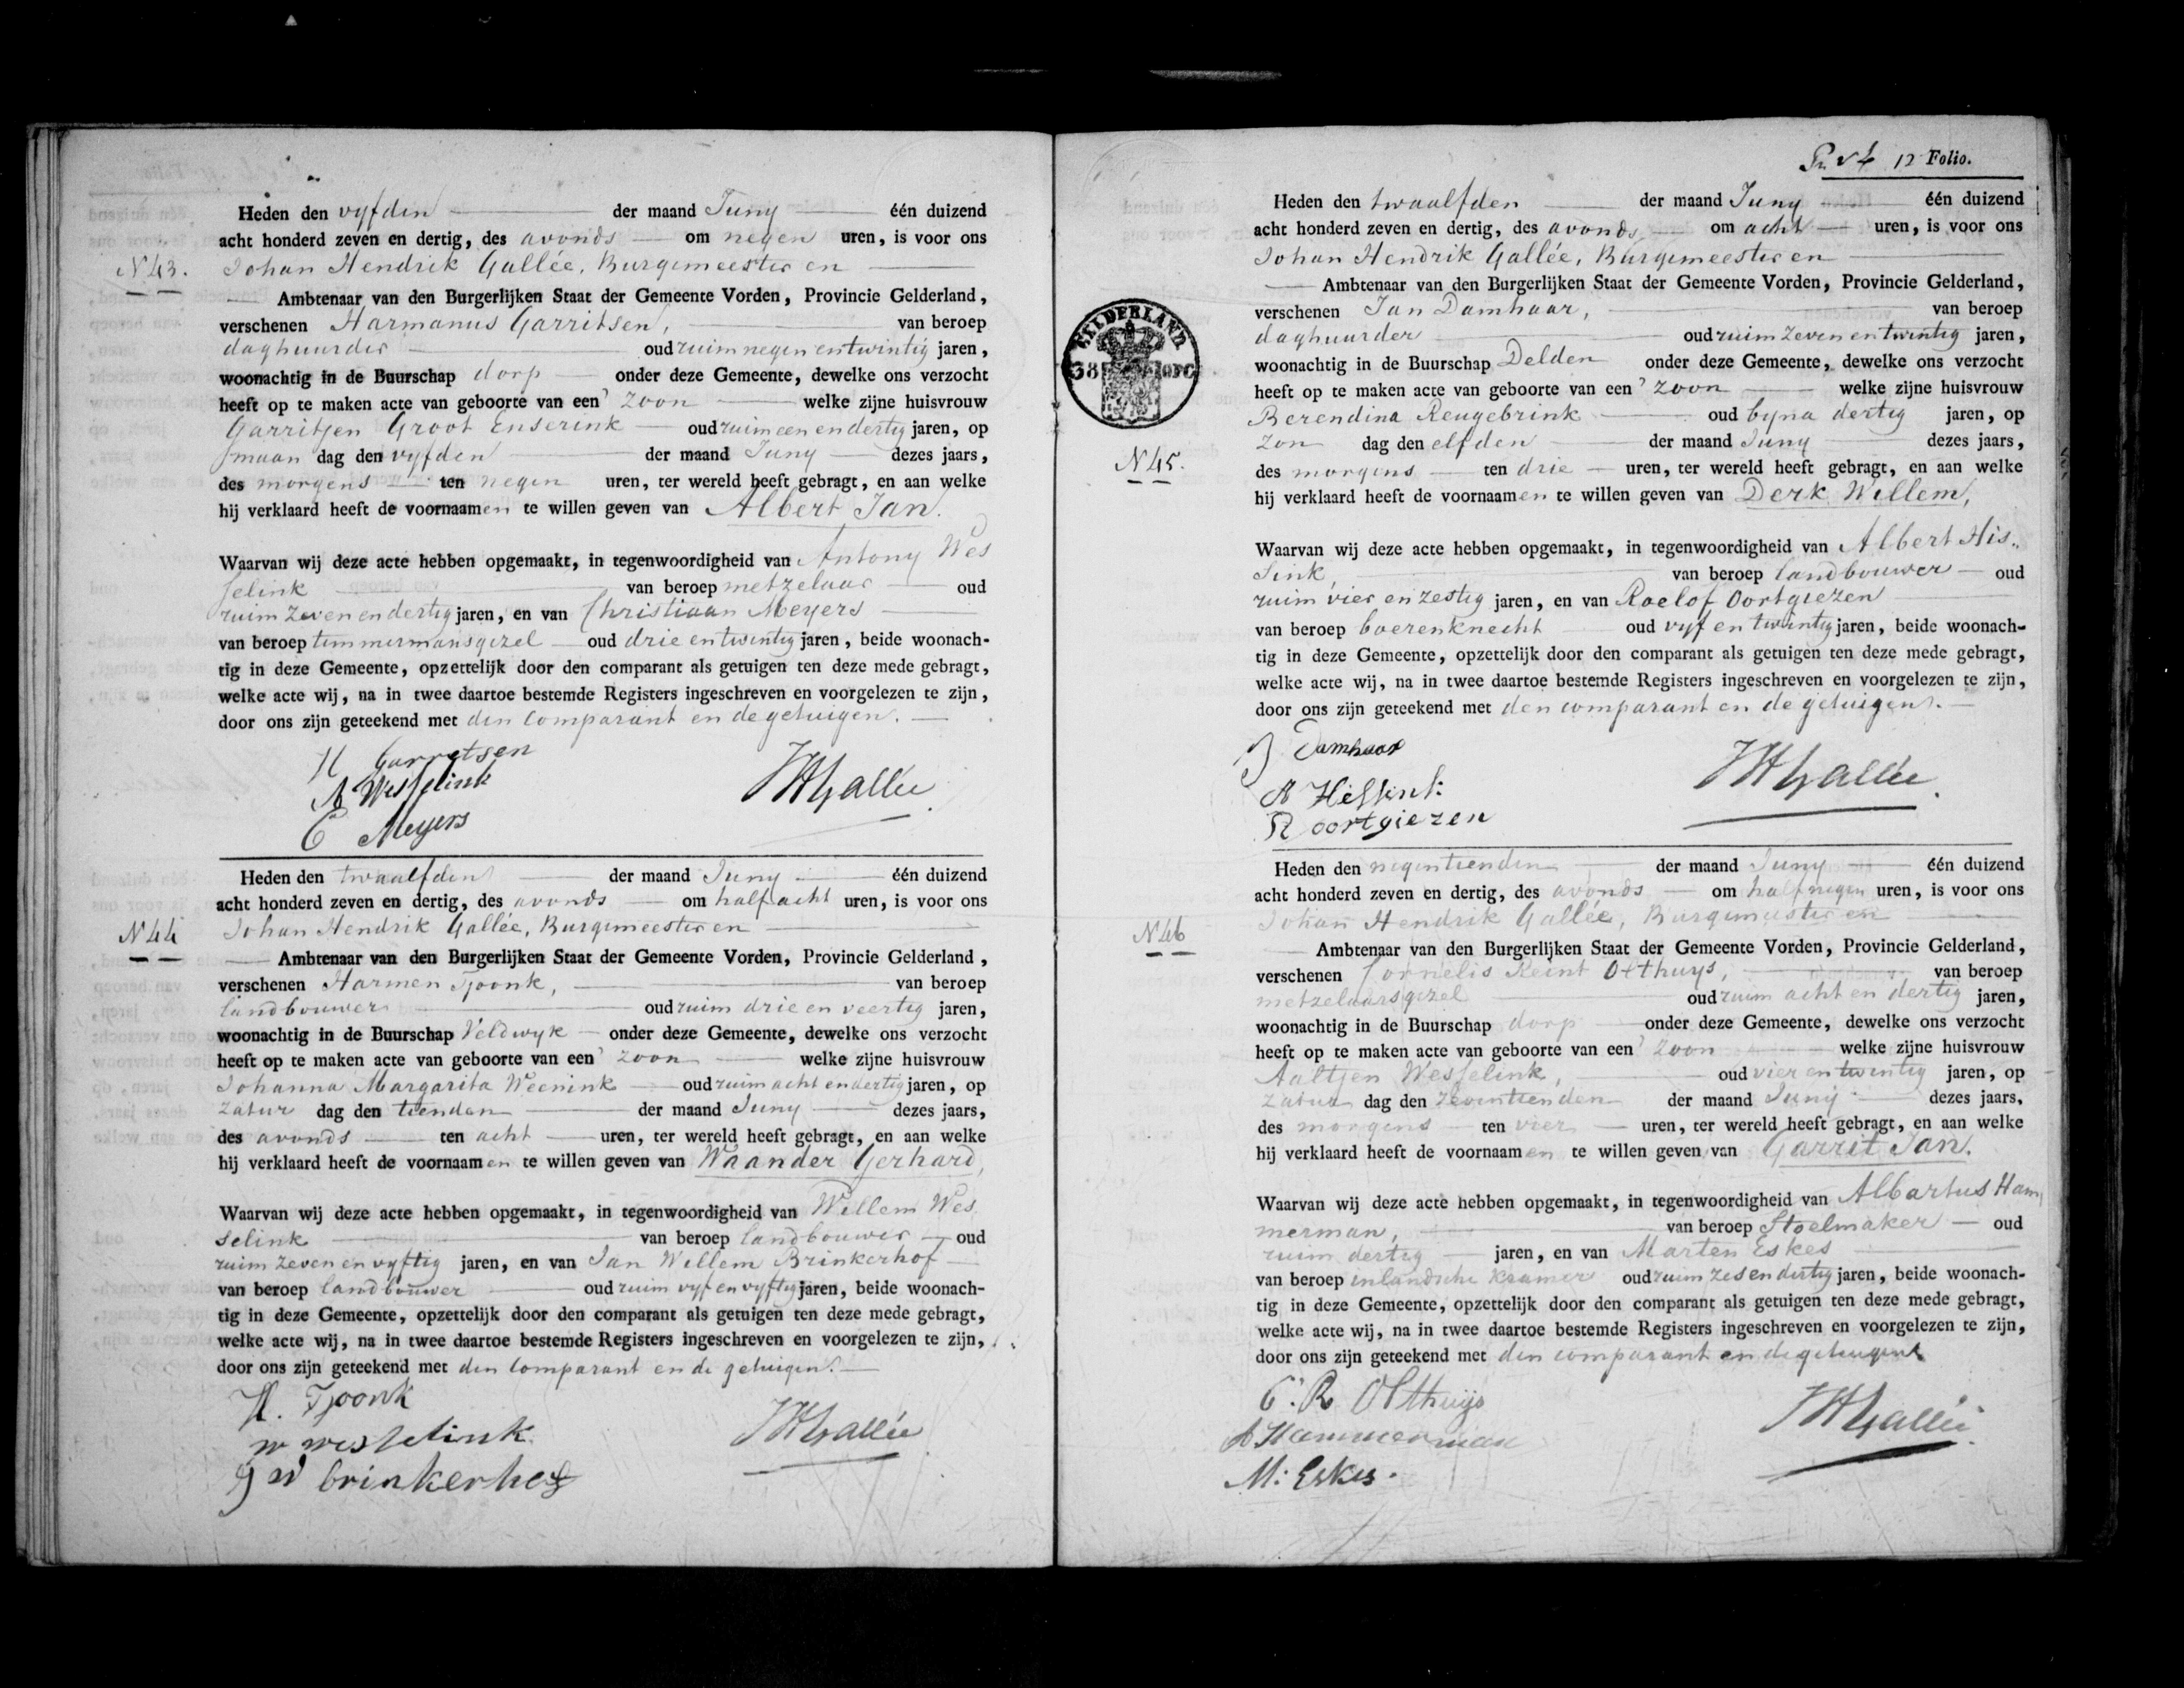 Heden den vyfden der maand Juny één duizend
acht honderd zeven en dertig, des avonds om negen uren, is voor ons
N 43. Johan Hendrik Gallée, Burgemeester en
Ambtenaar van den Burgerlijken Staat der Gemeente Vorden, Provincie Gelderland,
verschenen Harmanus Garritsen, van beroep
daghuurder oud ruim negen en twintig jaren,
woonachtig in de Buurschap dorp onder deze Gemeente, dewelke ons verzocht
heeft op te maken acte van geboorte van een' zoon welke zijne huisvrouw
Garritjen Groot Enserink oud ruim een en dertig jaren, op
maan dag den vyfden der maand Juny dezes jaars,
des morgens ten negen uren, ter wereld heeft gebragt, en aan welke
hij verklaard heeft de voornaamen te willen geven van Albert Jan.
Waarvan wij deze acte hebben opgemaakt, in tegenwoordigheid van Antony Wes
selink van beroep metzelaar oud
ruim zeven en dertig jaren, en van Christiaan Meyers
van beroep timmermansgezel oud drie en twintig jaren, beide woonach-
tig in deze Gemeente, opzettelijk door den comparant als getuigen ten deze mede gebragt,
welke acte wij, na in twee daartoe bestemde Registers ingeschreven en voorgelezen te zijn,
door ons zijn geteekend met den Comparant en de getuigen.
H Garretsen
A Wesselink
C Meyers
JHGallée
Heden den twaalfden der maand Juny één duizend
acht honderd zeven en dertig, des avonds om half acht uren, is voor ons
N 44 Johan Hendrik Gallée, Burgemeester en
Ambtenaar van den Burgerlijken Staat der Gemeente Vorden, Provincie Gelderland,
verschenen Harmen Tjoonk, van beroep
landbouwer oud ruim drie en veertig jaren,
woonachtig in de Buurschap Veldwyk onder deze Gemeente, dewelke ons verzocht
heeft op te maken acte van geboorte van een' zoon welke zijne huisvrouw
Johanna Margarita Weenink oud ruim acht en dertig jaren, op
Zatur dag den tienden der maand Juny dezes jaars,
des avonds ten acht uren, ter wereld heeft gebragt, en aan welke
hij verklaard heeft de voornaamen te willen geven van Waander Gerhard,
Waarvan wij deze acte hebben opgemaakt, in tegenwoordigheid van Willem Wes
selink van beroep landbouwer oud
ruim zeven en vyftig jaren, en van Jan Willem Brinkerhof
van beroep landbouwer oud ruim vyf en vyftig jaren, beide woonach-
tig in deze Gemeente, opzettelijk door den comparant als getuigen ten deze mede gebragt,
welke acte wij, na in twee daartoe bestemde Registers ingeschreven en voorgelezen te zijn,
door ons zijn geteekend met den Comparant en de getuigen.
H. Tjoonk
w wesselink
J W brinkerhof
JHGallée
12 Folio.
Heden den twaalfden der maand Juny één duizend
acht honderd zeven en dertig, des avonds om acht uren, is voor ons
Johan Hendrik Gallée, Burgemeester en
Ambtenaar van den Burgerlijken Staat der Gemeente Vorden, Provincie Gelderland,
verschenen Jan Damhaar, van beroep
daghuurder oud ruim zeven en twintig jaren,
woonachtig in de Buurschap Delden onder deze Gemeente, dewelke ons verzocht
heeft op te maken acte van geboorte van een' zoon welke zijne huisvrouw
Berendina Reugebrink oud byna dertig jaren, op
Zon dag den elfden der maand Juny dezes jaars,
GELDERLAND
38
N 45. des morgens ten drie uren, ter wereld heeft gebragt, en aan welke
hij verklaard heeft de voornaamen te willen geven van Derk Willem,
Waarvan wij deze acte hebben opgemaakt, in tegenwoordigheid van Albert His
sink, van beroep landbouwer oud
ruim vier en zestig jaren, en van Roelof Oortgiezen
van beroep boerenknecht oud vyf en twintig jaren, beide woonach-
tig in deze Gemeente, opzettelijk door den comparant als getuigen ten deze mede gebragt,
welke acte wij, na in twee daartoe bestemde Registers ingeschreven en voorgelezen te zijn,
door ons zijn geteekend met den comparant en de getuigen.
J Damhaar
A Hissink
R oortgiezen
JHGallée
Heden den negentienden der maand Juny één duizend
acht honderd zeven en dertig, des avonds om half negen uren, is voor ons
N 46 Johan Hendrik Gallée, Burgemeester en
Ambtenaar van den Burgerlijken Staat der Gemeente Vorden, Provincie Gelderland,
verschenen Cornelis Reint Olthuys, van beroep
metzelaarsgezel oud ruim acht en dertig jaren,
woonachtig in de Buurschap dorp onder deze Gemeente, dewelke ons verzocht
heeft op te maken acte van geboorte van een' zoon welke zijne huisvrouw
Aaltjen Wesselink, oud vier en twintig jaren, op
Zatur dag den zeventienden der maand Juny dezes jaars,
des morgens ten vier uren, ter wereld heeft gebragt, en aan welke
hij verklaard heeft de voornaamen te willen geven van Garrit Jan.
Waarvan wij deze acte hebben opgemaakt, in tegenwoordigheid van Albartus Ham
merman, van beroep Stoelmaker oud
ruim dertig jaren, en van Marten Eskes
van beroep inlandsche kramer oud ruim zes en dertig jaren, beide woonach-
tig in deze Gemeente, opzettelijk door den comparant als getuigen ten deze mede gebragt,
welke acte wij, na in twee daartoe bestemde Registers ingeschreven en voorgelezen te zijn,
door ons zijn geteekend met den comparant en de getuigen
C. R Olthuijs
A Hammerman
M: Eskes.
JHGallée